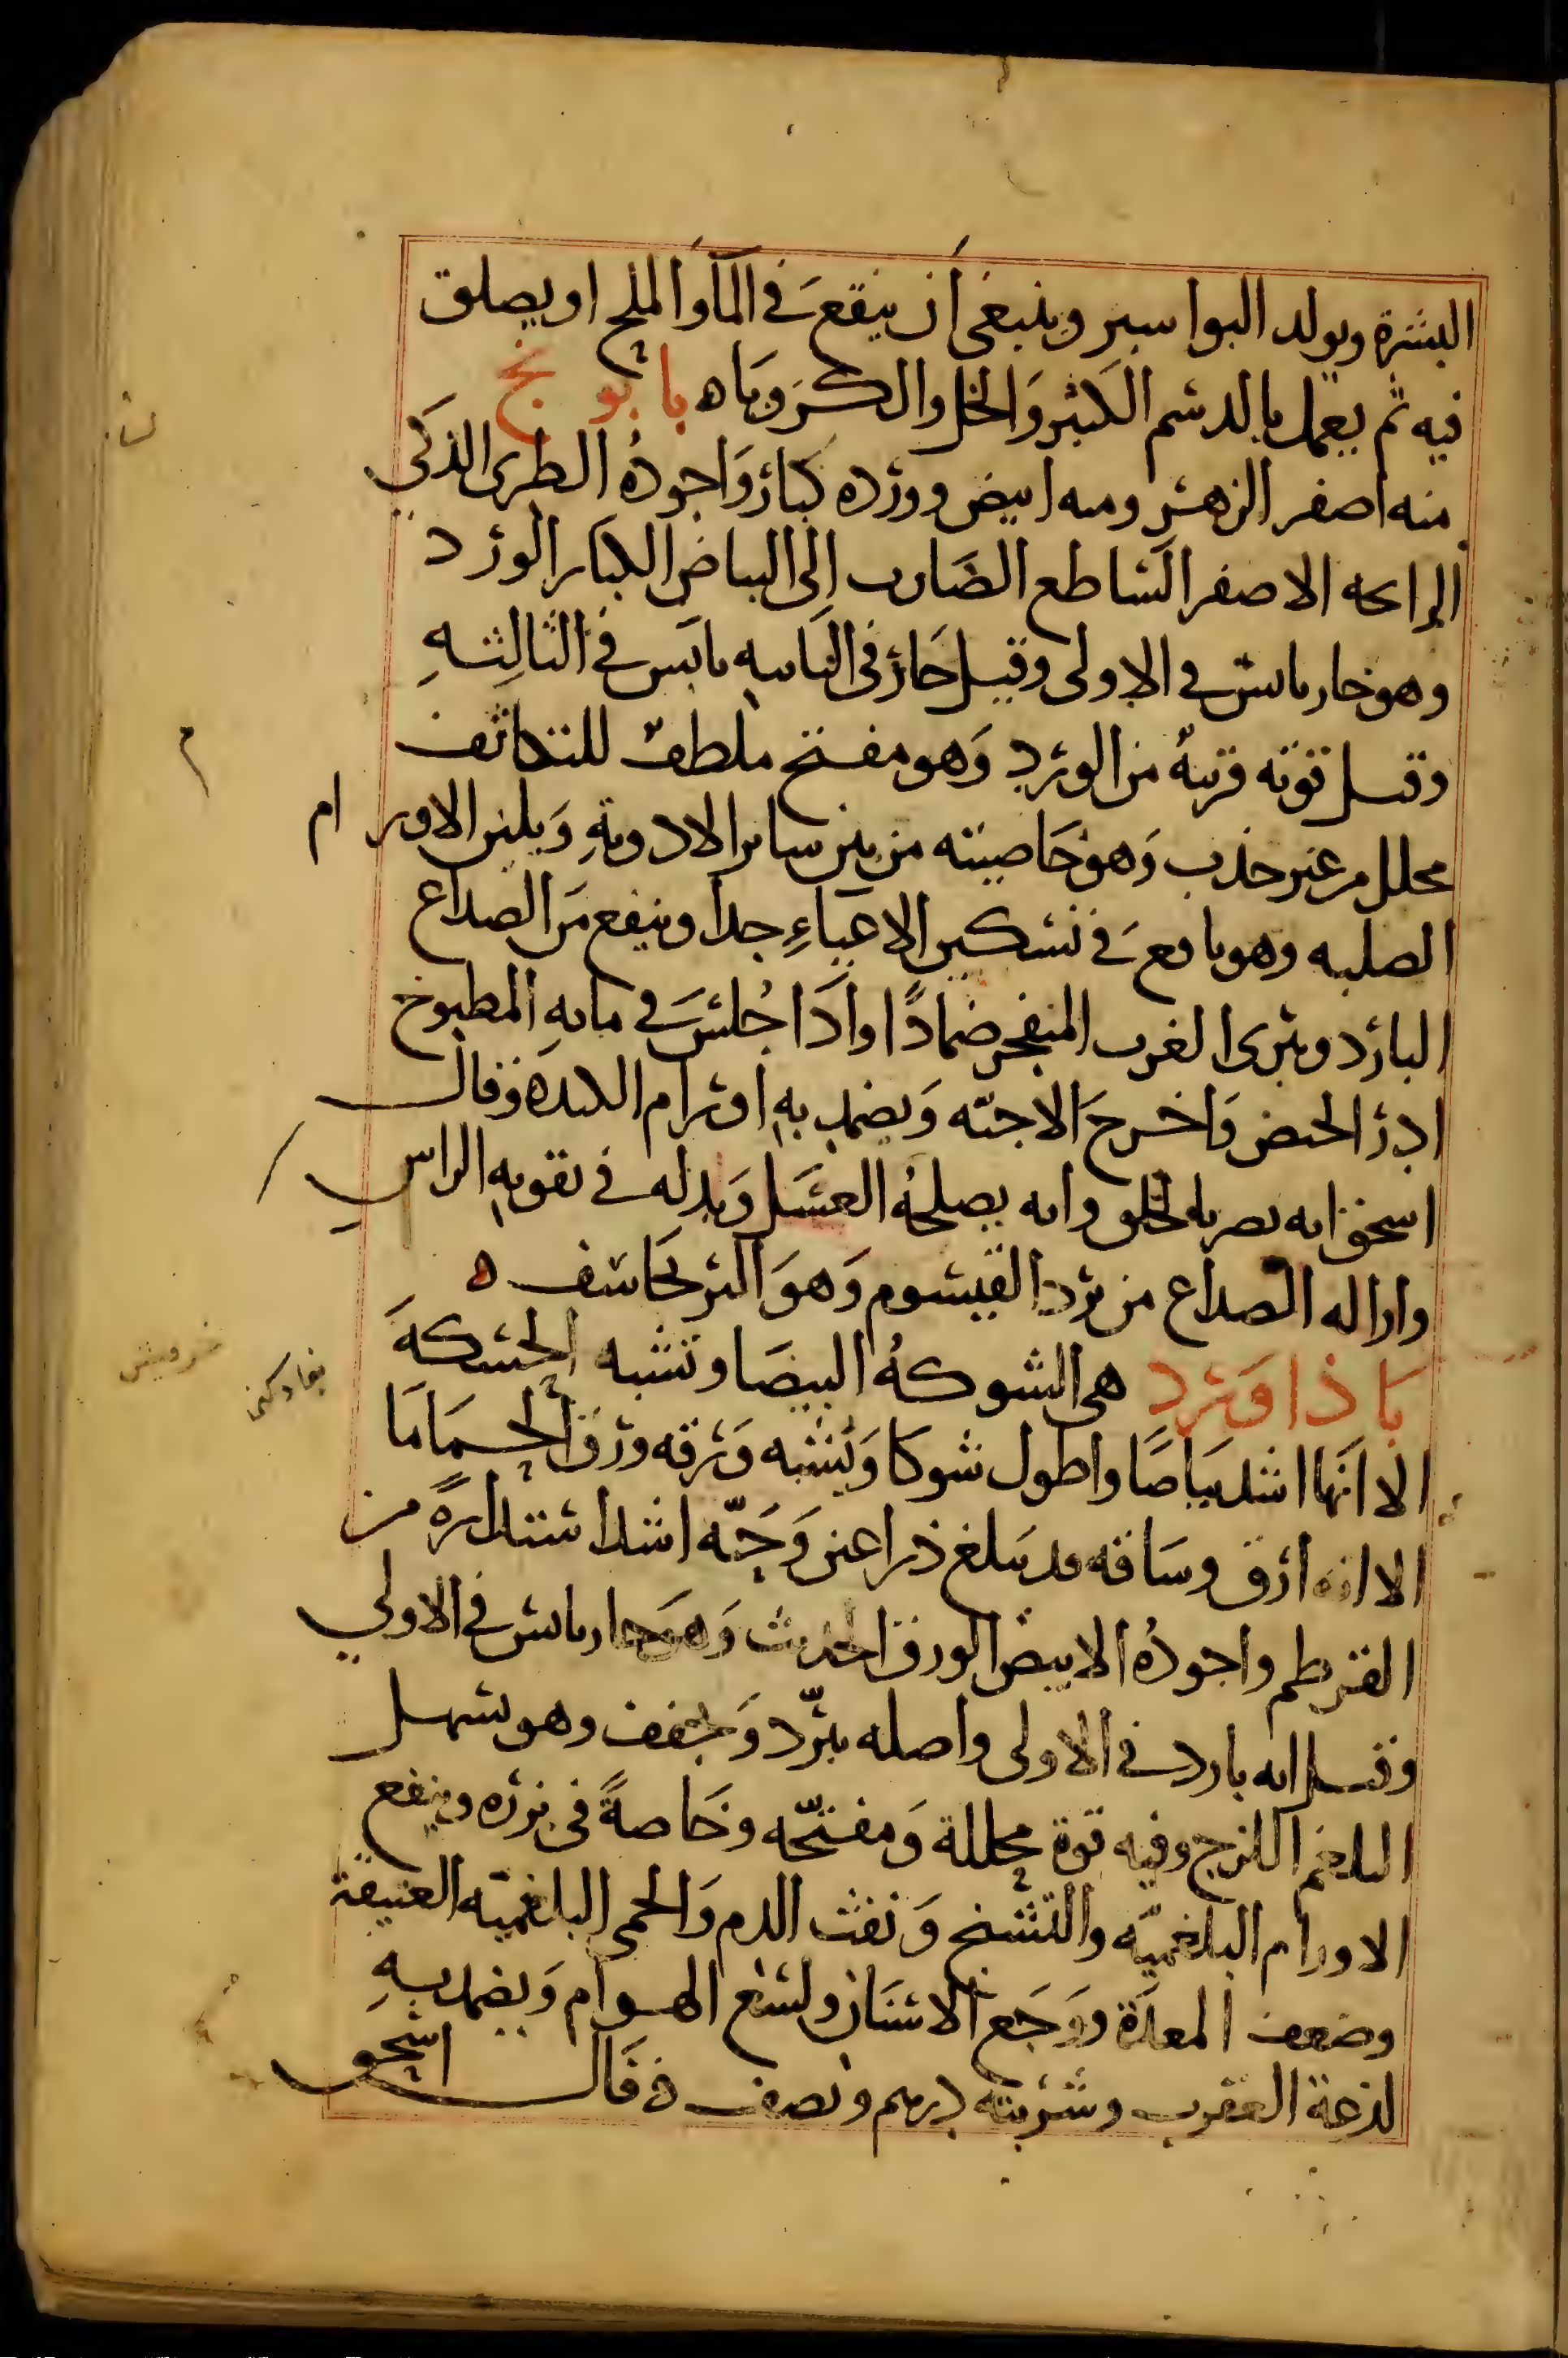 البشرة ويولد البواسير وينبغي أن ينقع في الماء والملح او يصلق
فيه ثم يعمل بالدسم الكثير والخل والكرويا ه بابونج
منه اصفر الزهر ومنه ابيض وورده كبار واجوده الطرى الذكي
الرايحه الاصفر الساطع الضارب إلى البياض الكبار الورد
وهو حار يابس في الاولى وقيل حار في الثانيه يابس في الثالثه
وقيل قوته قريبة من الورد وهو مفتح ملطف للتكاثف
محلل من غير جذب وهو خاصيته من بين ساير الادوية ويلين الاورام
الصلبه وهو نافع في تسكين الاعياء جدا وينفع من الصداع
البارد ويبرى الغرب المنفجر ضمادا واذا جلس في مايه المطبوخ
ادر الحيض واخرج الاجنه ويضمد به اورام الكبد ه وقال
اسحق انه يضر بالحلق وانه يصلحه العسل وبدله في تقويه الراس
وازاله الصداع من برد القيسوم وهو البرنجاسف ه
باذاورد هي الشوكه البيضا وتشبه الحسكه
الا انها اشد بياضا واطول شوكا ويشبه ورقه ورق الحماما
الا انه ارق وساقه قد يبلغ ذراعين وحبه اشد استدارة من
القرطم واجوده الابيض الورق الحديث وهو حار يابس في الاولي
وقيل انه بارد في الاولى واصله يبرد ويجفف وهو يسهل
البلغم اللزج وفيه قوة محللة ومفتحه وخاصة في بزره وينفع
الاورام البلغميه والتشنج ونفث الدم والحمى البلغميه العتيقة
وضعف المعدة ووجع الاسنان ولسع الهوام ويضمد به
لذعة العقرب وشربته درهم ونصف ه قال اسحق